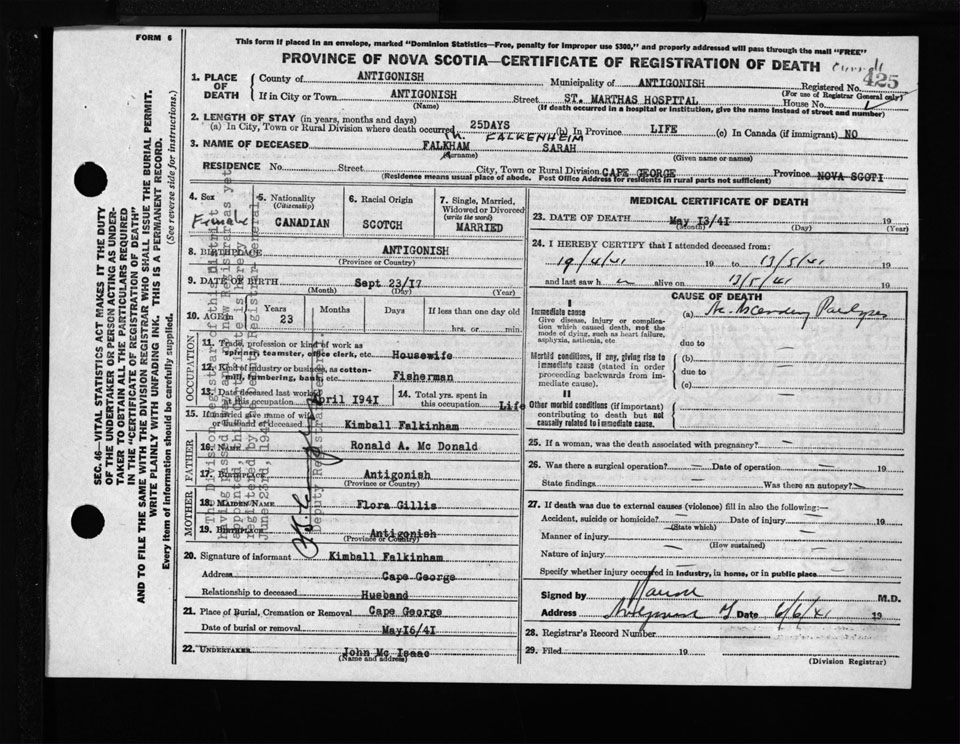 FORM 6
This form if placed in an envelope, marked "Dominion Statistics—Free, penalty for improper use $300," and properly addressed will pass through the mail "FREE"
PROVINCE OF NOVA SCOTIA—CERTIFICATE OF REGISTRATION OF DEATH
425
1. PLACE OF DEATH
County of ANTIGONISH Municipality of ANTIGONISH Registered No.
(For use of Registrar General only)
If in City or Town ANTIGONISH Street ST. MARTHAS HOSPITAL House No.
(Name) (If death occurred in a hospital or institution, give the name instead of street and number)
2. LENGTH OF STAY (in years, months and days)
(a) In City, Town or Rural Division where death occurred 25DAYS (b) In Province LIFE (c) In Canada (if immigrant) NO
FALKENHEIM
3. NAME OF DECEASED FALKHAM SARAH
(Surname) (Given name or names)
RESIDENCE No. Street City, Town or Rural Division CAPE GEORGE Province NOVA SCOTI
(Residence means usual place of abode. Post Office Address for residents in rural parts not sufficient)
4. Sex Female
5. Nationality (Citizenship) CANADIAN
6. Racial Origin SCOTCH
7. Single, Married, Widowed or Divorced (write the word) MARRIED
8. BIRTHPLACE ANTIGONISH
(Province or Country)
9. DATE OF BIRTH Sept 23/17
(Month) (Day) (Year)
10. AGE Years 23 Months Days If less than one day old
hrs. or min.
OCCUPATION
11. Trade, profession or kind of work as spinner, teamster, office clerk, etc. Housewife
12. Kind of industry or business, as cotton-mill, lumbering, bank, etc. Fisherman
13. Date deceased last worked at this occupation April 1941
14. Total yrs. spent in this occupation Life
15. If married give name of wife or husband of deceased Kimball Falkinham
FATHER
16. NAME Ronald A. Mc Donald
17. BIRTHPLACE Antigonish
(Province or Country)
MOTHER
18. MAIDEN NAME Flora Gillis
19. BIRTHPLACE Antigonish
(Province or Country)
20. Signature of informant Kimball Falkinham
Address Cape George
Relationship to deceased Husband
21. Place of Burial, Cremation or Removal Cape George
Date of burial or removal May16/41
22. UNDERTAKER John Mc Isaac
(Name and address)
MEDICAL CERTIFICATE OF DEATH
23. DATE OF DEATH May 13/41 19
(Month) (Day) (Year)
24. I HEREBY CERTIFY that I attended deceased from:
19/4/41 19 to 13/5/41 19
and last saw h alive on 13/5/41 19
CAUSE OF DEATH
I
Immediate cause
Give disease, injury or complication which caused death, not the mode of dying, such as heart failure, asphyxia, asthenia, etc.
(a) Ac. Ascending Paralysis
due to
Morbid conditions, if any, giving rise to immediate cause (stated in order proceeding backwards from immediate cause).
(b)
due to
(c)
II
Other morbid conditions (if important) contributing to death but not causally related to immediate cause.
25. If a woman, was the death associated with pregnancy? —
26. Was there a surgical operation? — Date of operation — 19
State findings Was there an autopsy? —
27. If death was due to external causes (violence) fill in also the following:—
Accident, suicide or homicide? — Date of injury 19
(State which)
Manner of injury —
(How sustained)
Nature of injury —
Specify whether injury occurred in industry, in home, or in public place
Signed by M.D.
Address Date 6/6/41 19
28. Registrar's Record Number
29. Filed 19
(Division Registrar)
SEC. 46—VITAL STATISTICS ACT MAKES IT THE DUTY
OF THE UNDERTAKER OR PERSON ACTING AS UNDER-
TAKER TO OBTAIN ALL THE PARTICULARS REQUIRED
IN THE "CERTIFICATE OF REGISTRATION OF DEATH"
AND TO FILE THE SAME WITH THE DIVISION REGISTRAR WHO SHALL ISSUE THE BURIAL PERMIT.
WRITE PLAINLY WITH UNFADING INK. THIS IS A PERMANENT RECORD.
Every item of information should be carefully supplied.
(See reverse side for instructions.)